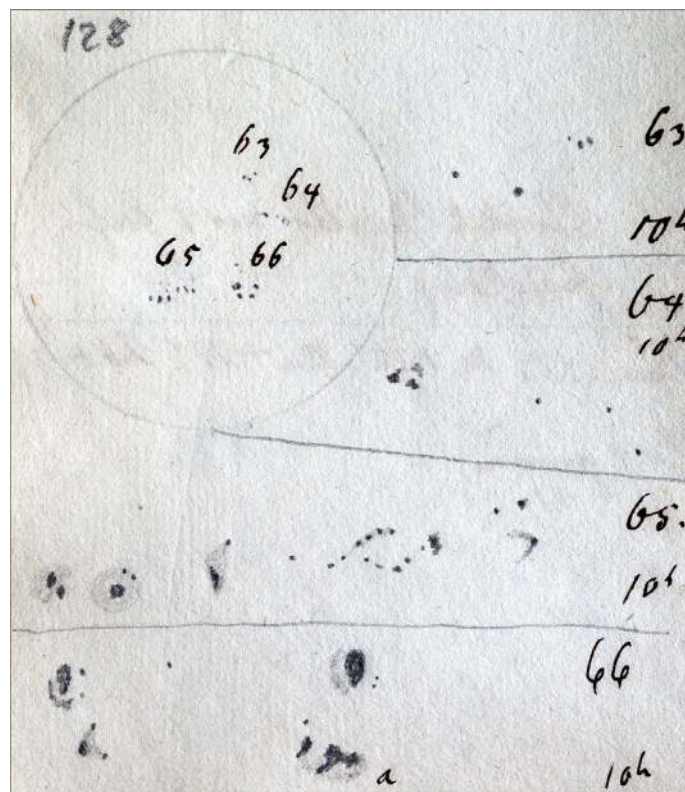 128
63
64
65 66
63
10h
64
10h
65.
10h
66
a 10h